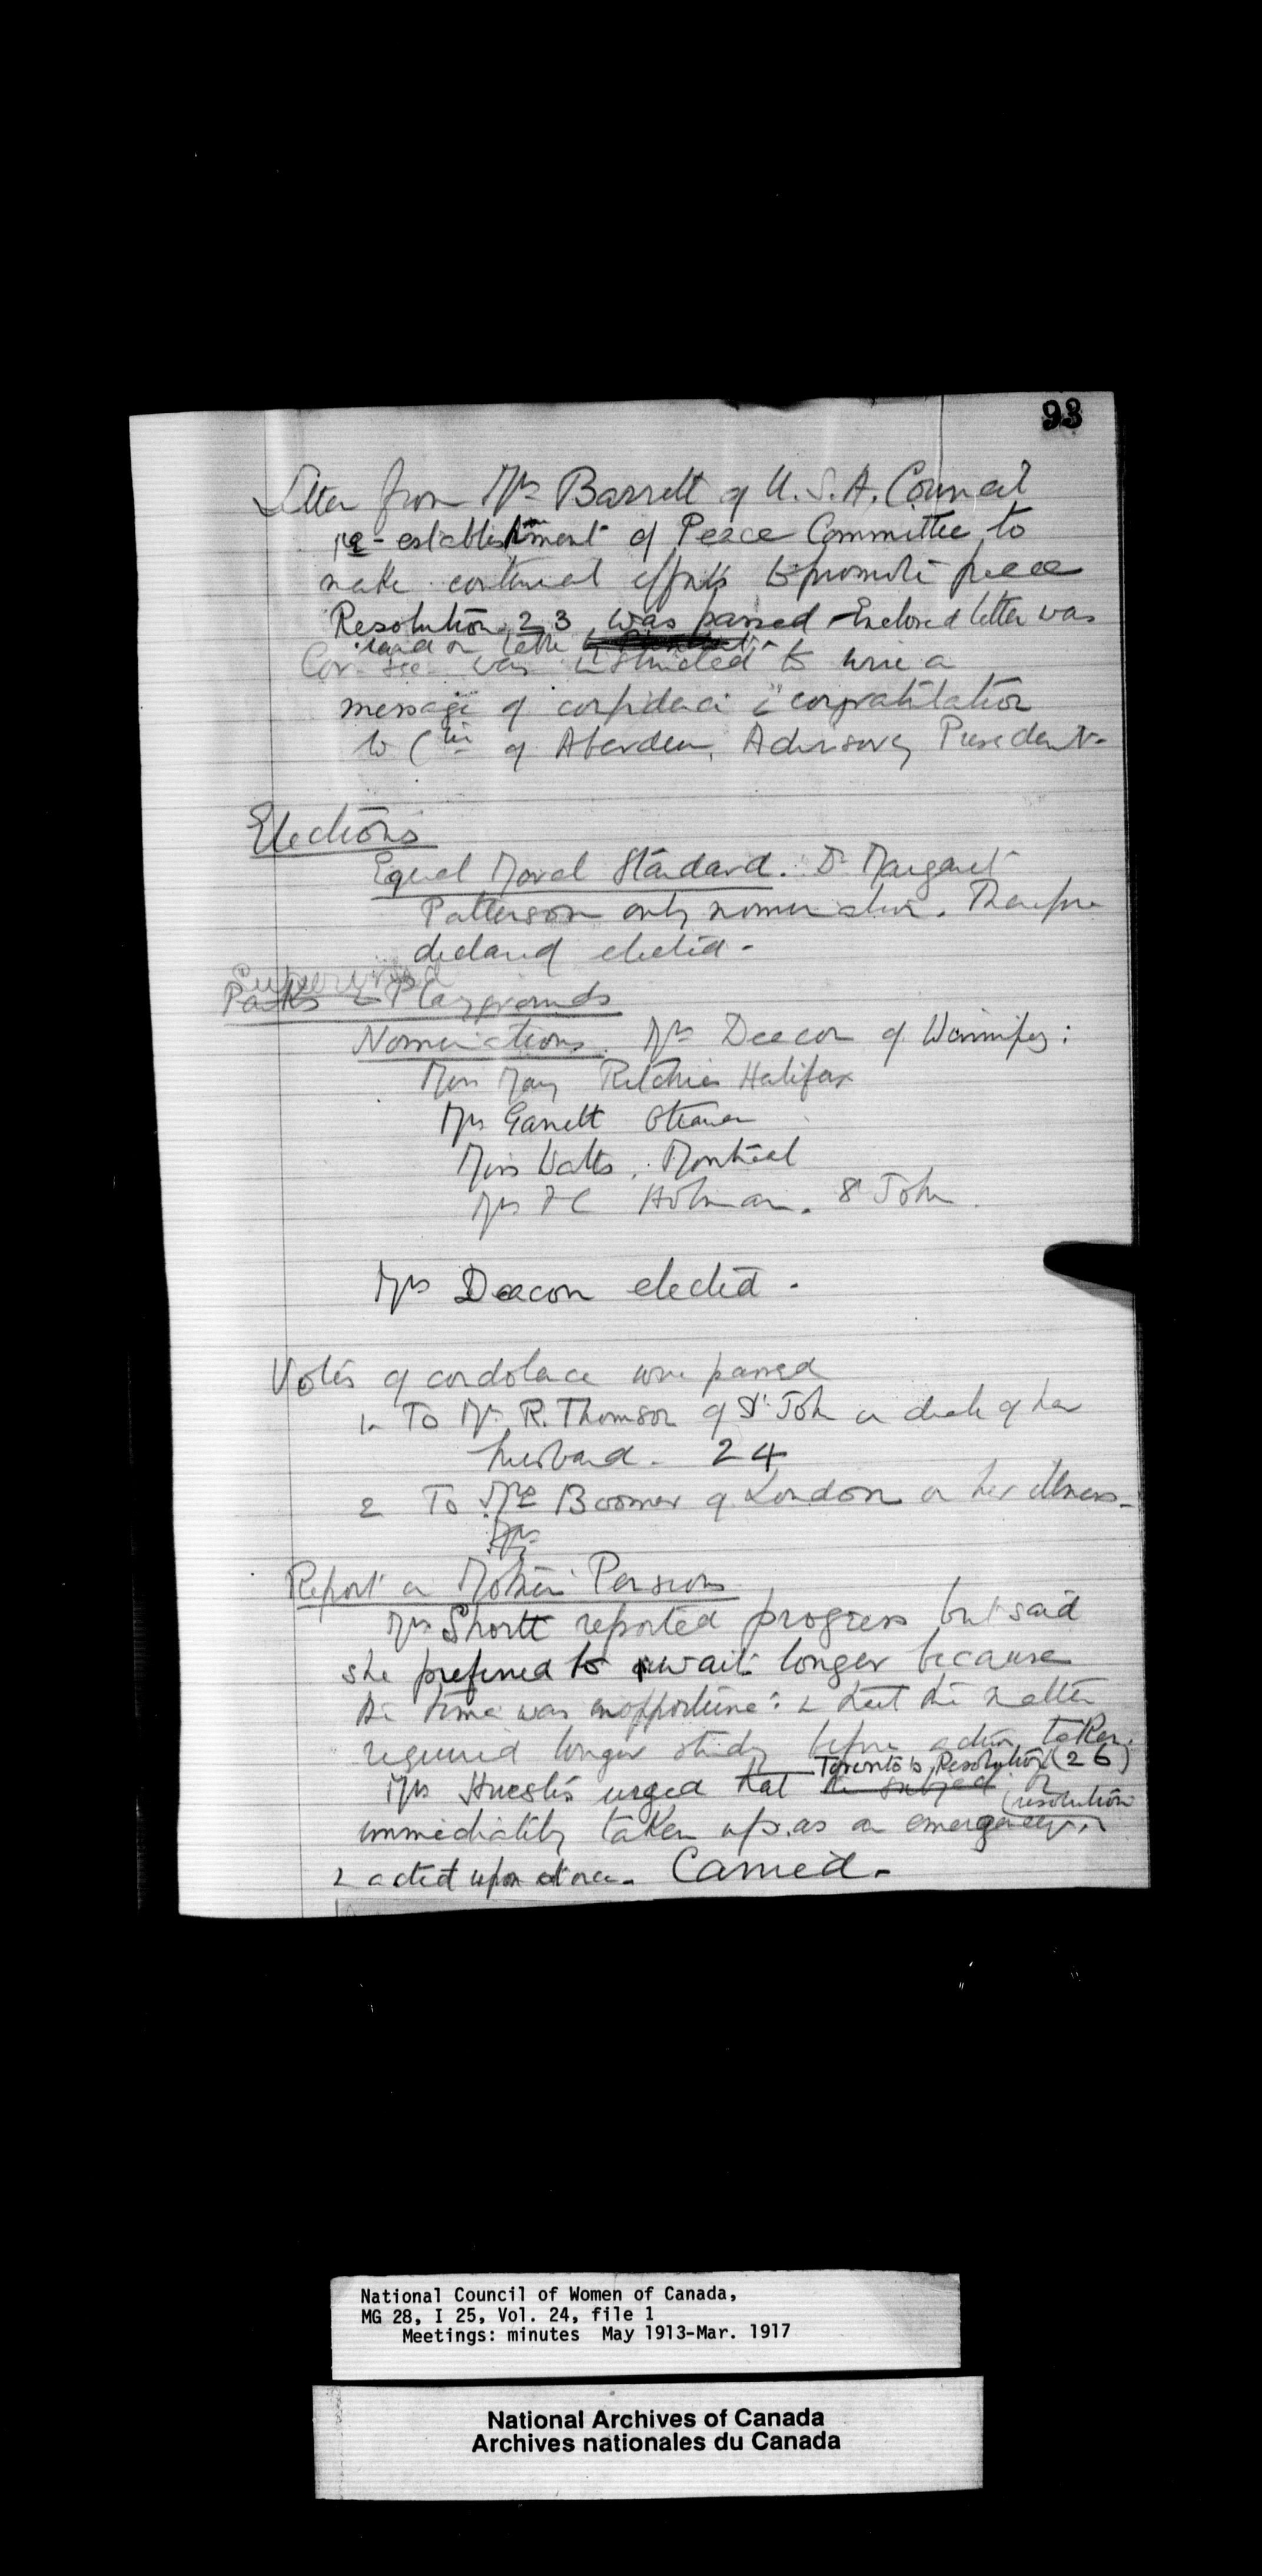 93
Letter from Mrs Barrett of U.S.A. Council
re-establishment of Peace Committee to
make continued efforts to promote peace
Resolution 23 was passed - Enclosed letter was
laid on table
Cor- Sec- was instructed to wire a
message of confidence & congratulation
to Css of Aberdeen, Advisory President-
Elections
Equal Moral Standard. Dr Margaret
Patterson only nomination. Therefore
declared elected -
Supervised
Parks & Playgrounds
Nominations. Mrs Deacon of Winnipeg:
Miss May Ritchie Halifax
Mrs Garrett Ottawa
Miss Watts. Montreal
Mrs Holman. St John
Mrs Deacon elected -
Votes of condolence were passed
1. To Mrs R. Thomson of St John on death of her
husband - 24
2 To Mrs Boomer of London on her illness -
Mrs
Report on Mothers' Pensions
Mrs Shortt reported progress but said
she preferred to wait longer because
the time was inopportune: & that the matter
required longer study before action taken.
Toronto's Resolution (26)
Mrs Huestis urged that the subject be
(resolution
immediately taken up as an emergency
& acted upon at once - Carried -
National Council of Women of Canada,
MG 28, I 25, Vol. 24, file 1
Meetings: minutes May 1913-Mar. 1917
National Archives of Canada
Archives nationales du Canada